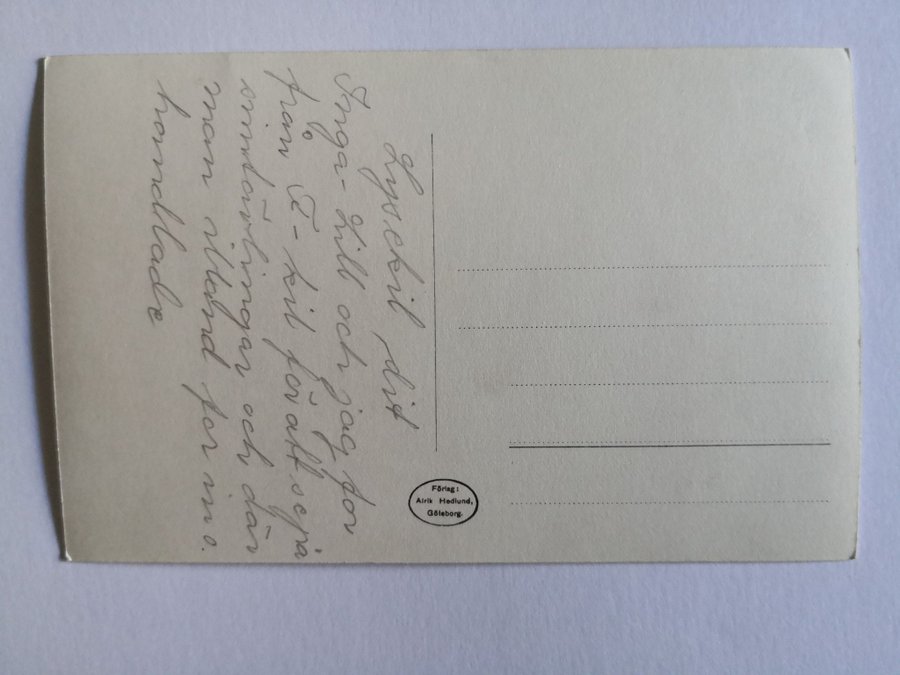 Lysekil dit
Inga-Lill och jag for
från F-kil för att se på
simtävlingar och där
man ibland for in o.
handlade
Förlag:
Alrik Hedlund,
Göteborg.